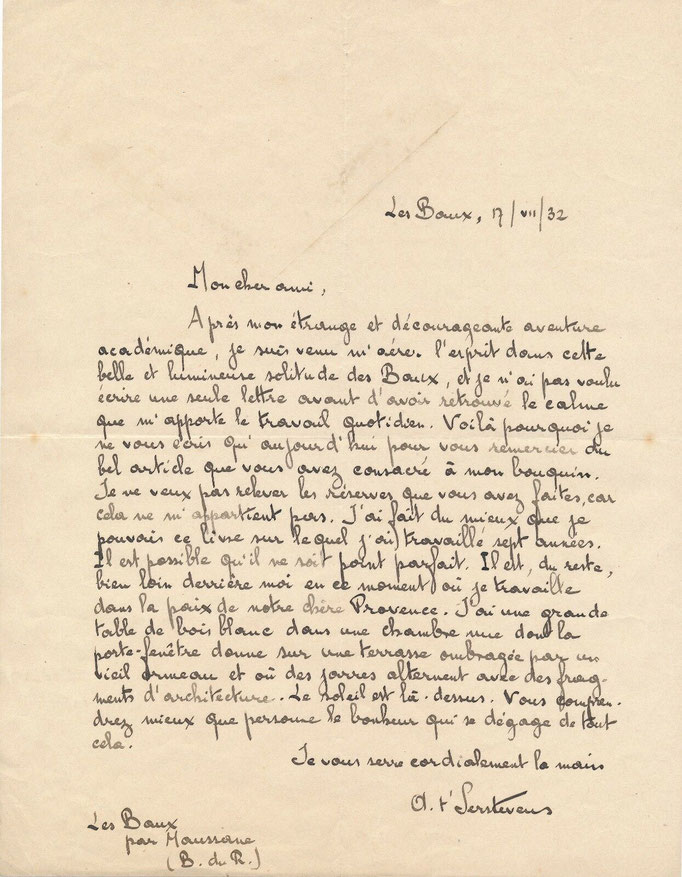 Les Baux, 17/VII/32
Mon cher ami,
Après mon étrange et décourageante aventure
académique, je suis venu m'aérer l'esprit dans cette
belle et lumineuse solitude des Baux, et je n'ai pas voulu
écrire une seule lettre avant d'avoir retrouvé le calme
que m'apporte le travail quotidien. Voilà pourquoi je
ne vous écris qu'aujourd'hui pour vous remercier du
bel article que vous avez consacré à mon bouquin.
Je ne veux pas relever les réserves que vous avez faites, car
cela ne m'appartient pas. J'ai fait du mieux que je
pouvais ce livre sur lequel j'ai travaillé sept années.
Il est possible qu'il ne soit point parfait. Il est, du reste,
bien loin derrière moi en ce moment où je travaille
dans la paix de notre chère Provence. J'ai une grande
table de bois blanc dans une chambre nue dont la
porte-fenêtre donne sur une terrasse ombragée par un
vieil ormeau et où des jarres alternent avec des frag-
ments d'architecture. Le soleil est là-dessus. Vous compren-
drez mieux que personne le bonheur qui se dégage de tout
cela.
Je vous serre cordialement la main
A. t'Serstevens
Les Baux
par Maussane
(B. du R.)